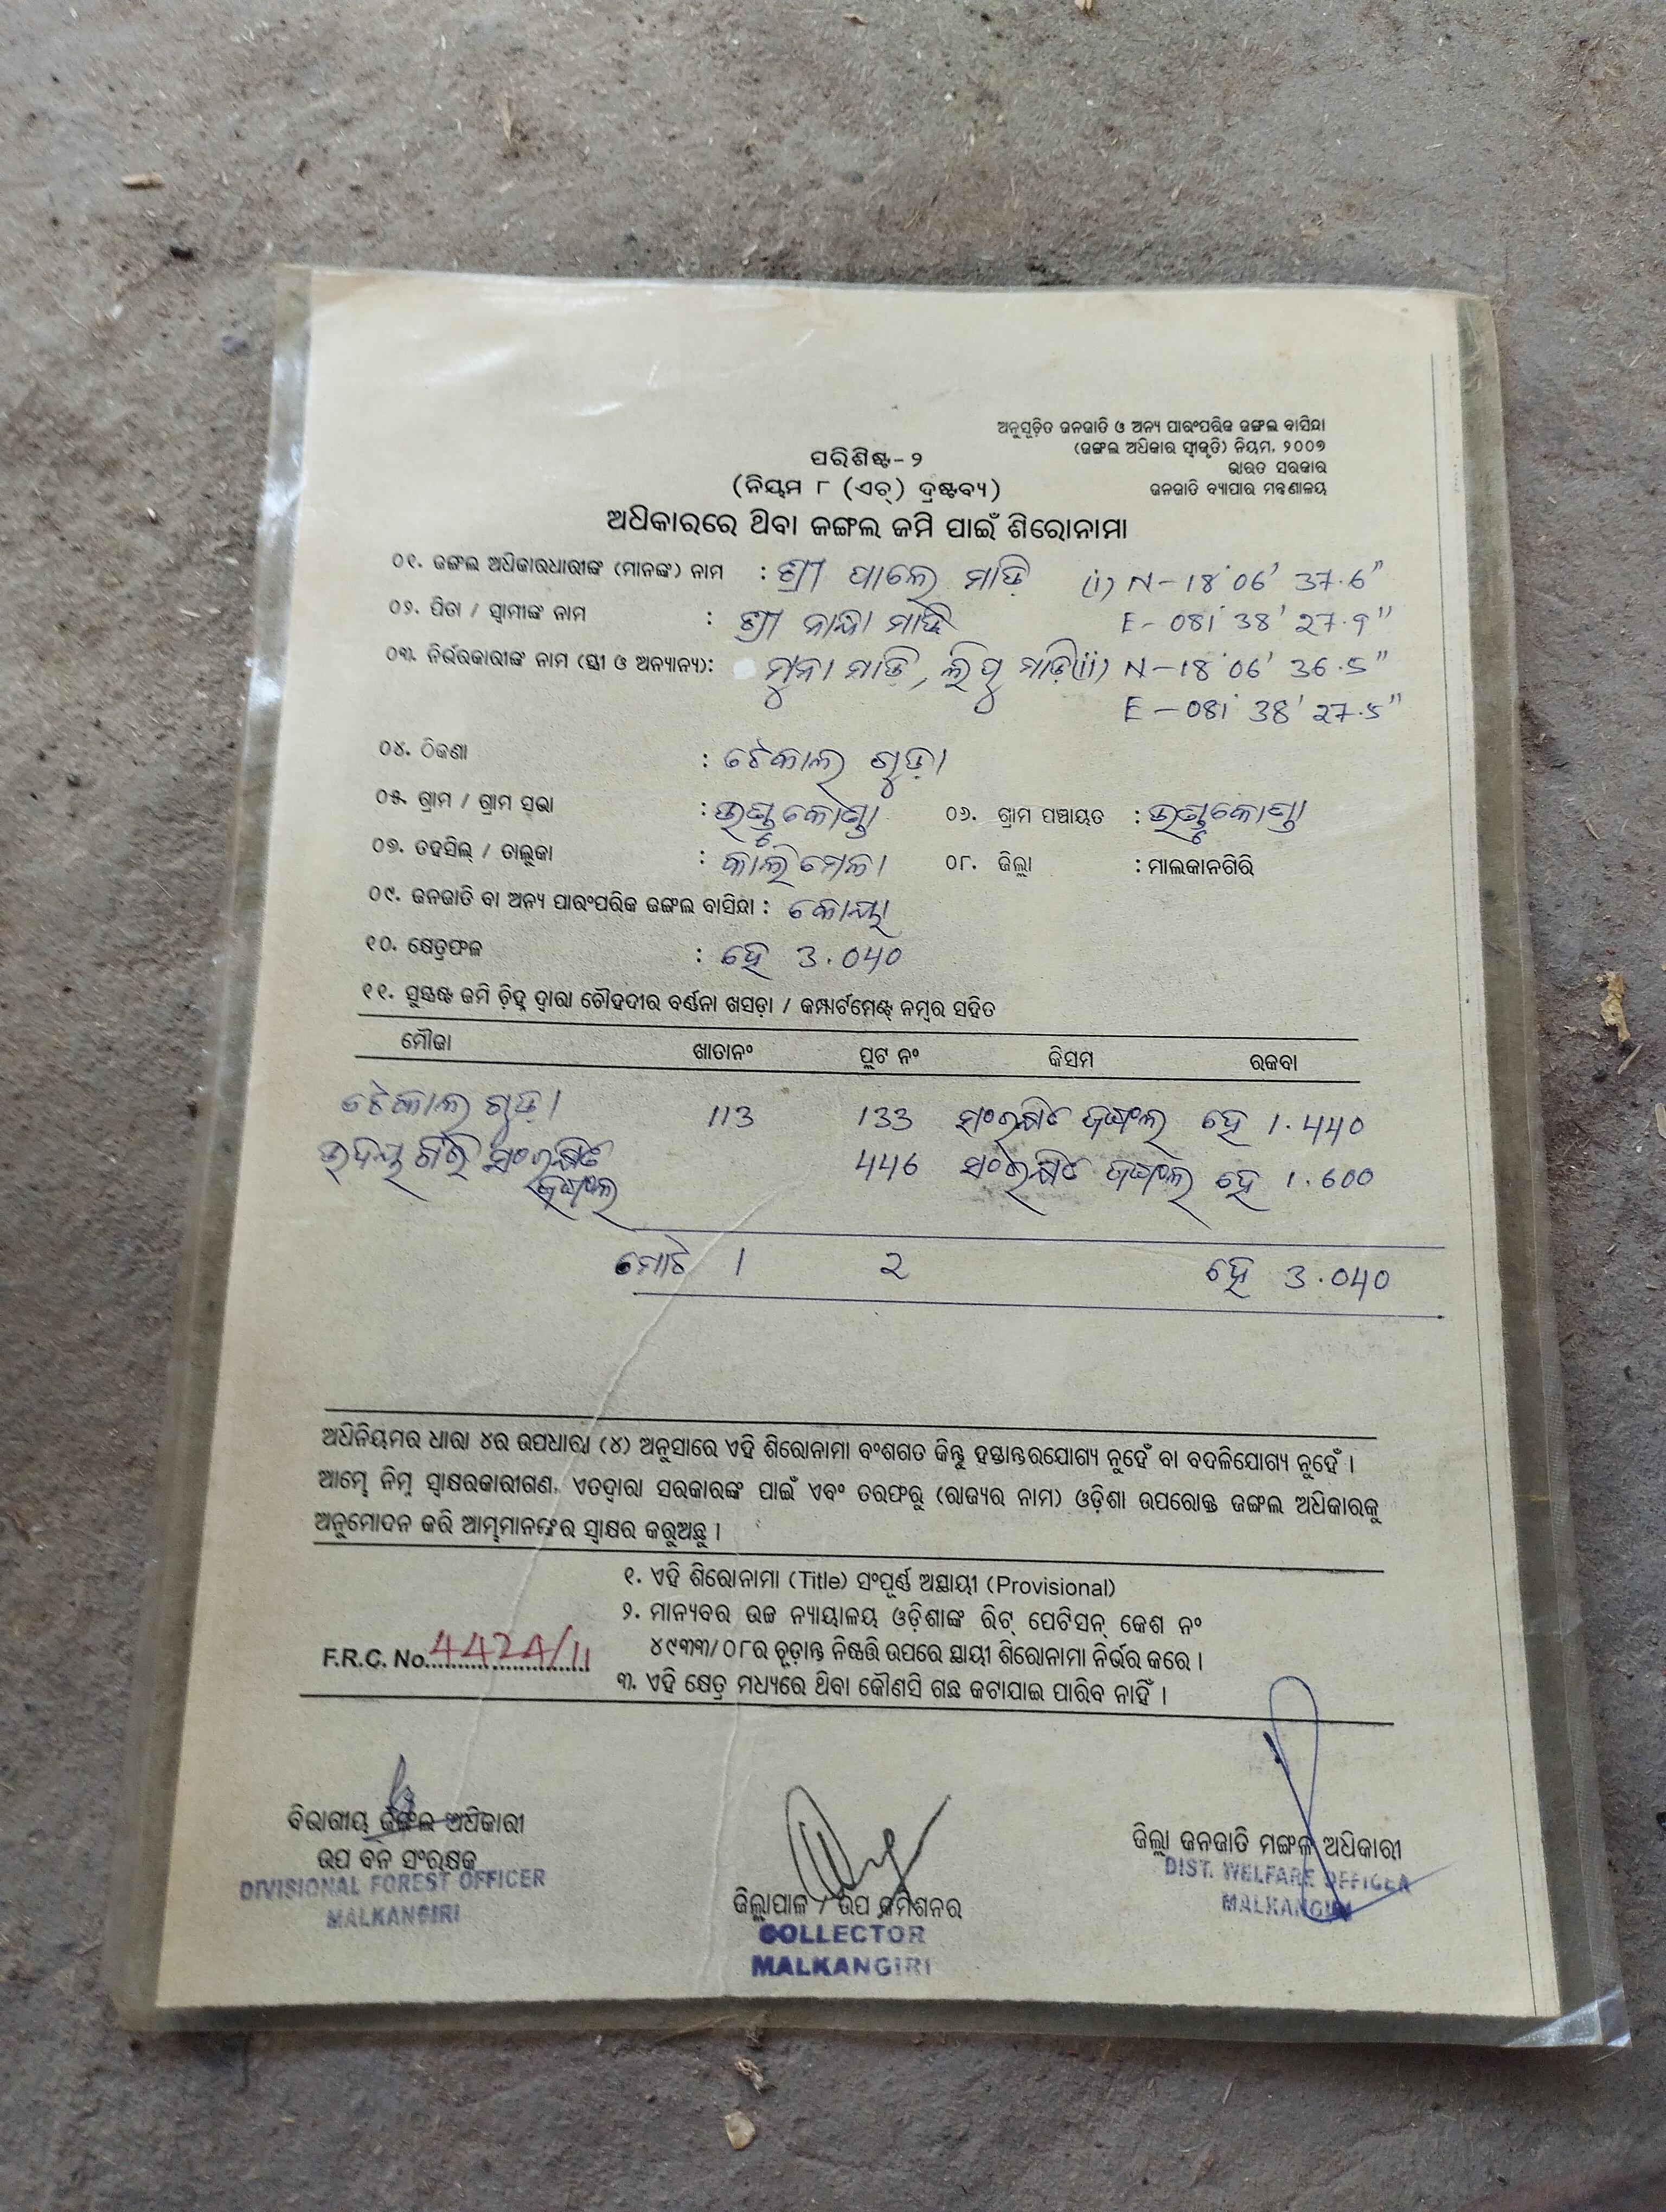 ଅନୁସୂଚିତ ଜନଜାତି ଓ ଅନ୍ୟ ପାରଂପରିକ ଜଙ୍ଗଲ ବାସିନ୍ଦା
(ଜଙ୍ଗଲ ଅଧିକାର ସ୍ୱୀକୃତି) ନିୟମ, ୨୦୦୭
ଭାରତ ସରକାର
ଜନଜାତି ବ୍ୟାପାର ମନ୍ତ୍ରଣାଳୟ
ପରିଶିଷ୍ଟ-୨
(ନିୟମ ୮ (ଏଚ୍) ଦ୍ରଷ୍ଟବ୍ୟ)
ଅଧିକାରରେ ଥିବା ଜଙ୍ଗଲ ଜମି ପାଇଁ ଶିରୋନାମା
୦୧. ଜଙ୍ଗଲ ଅଧିକାରଧାରୀଙ୍କ (ମାନଙ୍କ) ନାମ : ଶ୍ରୀ ପାଲେ ମାଡ଼ି (i) N-18°06' 37.6"
୦୨. ପିତା / ସ୍ୱାମୀଙ୍କ ନାମ : ଶ୍ରୀ ମାଡ଼ି E-081°38' 27.9"
୦୩. ନିର୍ଭରକାରୀଙ୍କ ନାମ (ସ୍ତ୍ରୀ ଓ ଅନ୍ୟାନ୍ୟ): ମୁକା ମାଡ଼ି, ମାଡ଼ି (ii) N-18°06' 36.5"
E-081°38' 27.5"
୦୪. ଠିକଣା : ଟେକାଲ ଗୁଡ଼ା
୦୫. ଗ୍ରାମ / ଗ୍ରାମ ସଭା : ଉଣ୍ଡୁକୋଣ୍ଡା ୦୬. ଗ୍ରାମ ପଞ୍ଚାୟତ : ଉଣ୍ଡୁକୋଣ୍ଡା
୦୭. ତହସିଲ୍ / ତାଲୁକା : କାଲିମେଳା ୦୮. ଜିଲ୍ଲା : ମାଲକାନଗିରି
୦୯. ଜନଜାତି ବା ଅନ୍ୟ ପାରଂପରିକ ଜଙ୍ଗଲ ବାସିନ୍ଦା : କୋୟା
୧୦. କ୍ଷେତ୍ରଫଳ : ହେ 3.040
୧୧. ସୁସ୍ପଷ୍ଟ ଜମି ଚିହ୍ନ ଦ୍ୱାରା ଚୌହଦୀର ବର୍ଣ୍ଣନା ଖସଡ଼ା / କମ୍ପାର୍ଟମେଣ୍ଟ୍ ନମ୍ବର ସହିତ
ମୌଜା ଖାତାନଂ ପ୍ଲଟ ନଂ କିସମ ରକବା
ଟେକାଲ ଗୁଡ଼ା 113 133 ସଂରକ୍ଷିତ ଜଙ୍ଗଲ ହେ 1.440
ଉଦୟ ଗିରି ସଂରକ୍ଷିତ 446 ସଂରକ୍ଷିତ ଜଙ୍ଗଲ ହେ 1.600
ଜଙ୍ଗଲ
ମୋଟ 1 2 ହେ 3.040
ଅଧିନିୟମର ଧାରା ୪ର ଉପଧାରା (୪) ଅନୁସାରେ ଏହି ଶିରୋନାମା ବଂଶଗତ କିନ୍ତୁ ହସ୍ତାନ୍ତରଯୋଗ୍ୟ ନୁହେଁ ବା ବଦଳିଯୋଗ୍ୟ ନୁହେଁ ।
ଆମ୍ଭେ ନିମ୍ନ ସ୍ୱାକ୍ଷରକାରୀଗଣ, ଏତଦ୍ୱାରା ସରକାରଙ୍କ ପାଇଁ ଏବଂ ତରଫରୁ (ରାଜ୍ୟର ନାମ) ଓଡ଼ିଶା ଉପରୋକ୍ତ ଜଙ୍ଗଲ ଅଧିକାରକୁ
ଅନୁମୋଦନ କରି ଆମ୍ଭମାନଙ୍କର ସ୍ୱାକ୍ଷର କରୁଅଛୁ ।
୧. ଏହି ଶିରୋନାମା (Title) ସଂପୂର୍ଣ୍ଣ ଅସ୍ଥାୟୀ (Provisional)
୨. ମାନ୍ୟବର ଉଚ୍ଚ ନ୍ୟାୟାଳୟ ଓଡ଼ିଶାଙ୍କ ରିଟ୍ ପେଟିସନ୍ କେଶ ନଂ
୪୯୩୩/୦୮ର ଚୂଡ଼ାନ୍ତ ନିଷ୍ପତ୍ତି ଉପରେ ସ୍ଥାୟୀ ଶିରୋନାମା ନିର୍ଭର କରେ ।
F.R.C. No. 4424/11
୩. ଏହି କ୍ଷେତ୍ର ମଧ୍ୟରେ ଥିବା କୌଣସି ଗଛ କଟାଯାଇ ପାରିବ ନାହିଁ ।
ବିଭାଗୀୟ ଜଙ୍ଗଲ ଅଧିକାରୀ
ଉପ ବନ ସଂରକ୍ଷକ
DIVISIONAL FOREST OFFICER
MALKANGIRI
ଜିଲ୍ଲାପାଳ / ଉପ କମିଶନର
COLLECTOR
MALKANGIRI
ଜିଲ୍ଲା ଜନଜାତି ମଙ୍ଗଳ ଅଧିକାରୀ
DIST. WELFARE OFFICER
MALKANGIRI